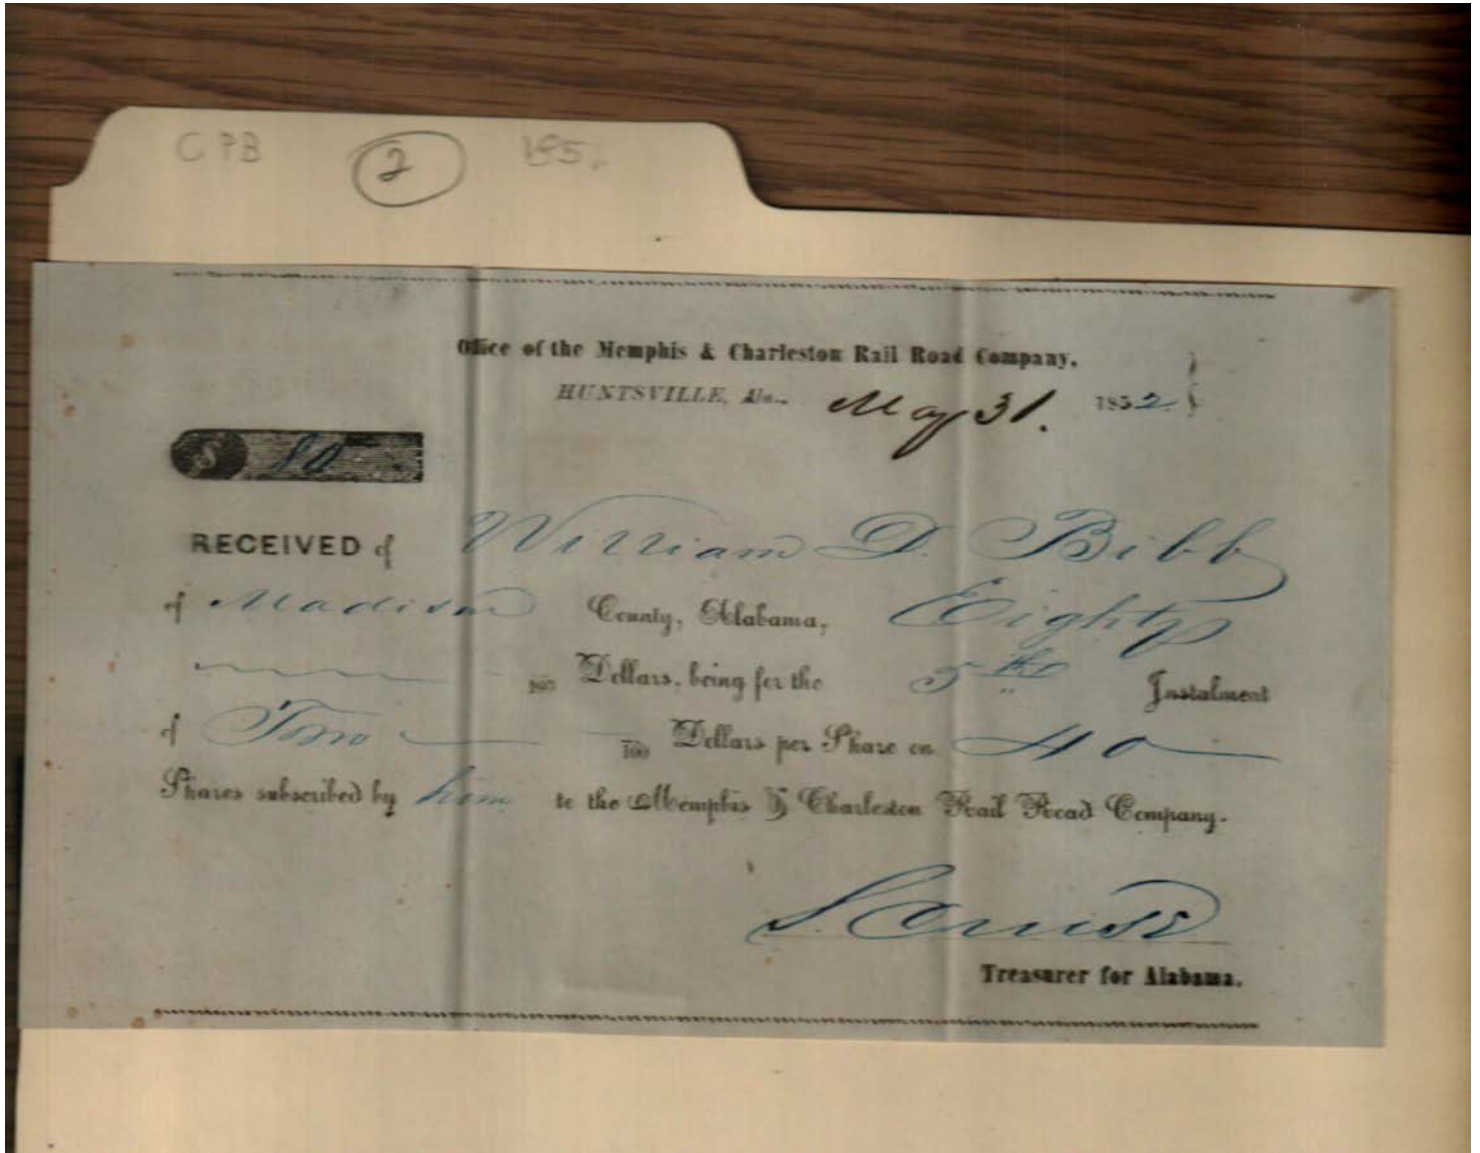 CPB 2 185
Office of the Memphis & Charleston Rail Road Company.
HUNTSVILLE, Ala., May 31. 1852.
$ 80
RECEIVED of William D. Bibb
of Madison County, Alabama, Eighty
100 Dollars, being for the 5th Instalment
of Two 100 Dollars per Share on 40
Shares subscribed by him to the Memphis & Charleston Rail Road Company.
S. Cruse
Treasurer for Alabama.